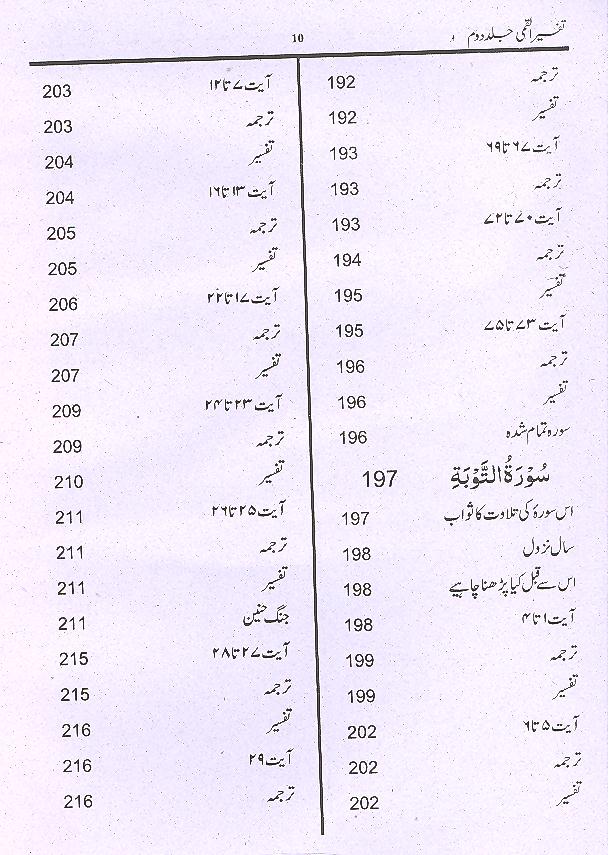 تفسیر القمی جلد دوم
10
ترجمہ 192
تفسیر 192
آیت ۶۷ تا ۶۹ 193
ترجمہ 193
آیت ۷۰ تا ۷۲ 193
ترجمہ 194
تفسیر 195
آیت ۷۳ تا ۷۵ 195
ترجمہ 196
تفسیر 196
سورہ تمام شدہ 196
سُوْرَةُ التَّوْبَةِ 197
اس سورۂ کی تلاوت کا ثواب 197
سال نزول 198
اس سے قبل کیا پڑھنا چاہیے 198
آیت ۱ تا ۴ 198
ترجمہ 199
تفسیر 199
آیت ۵ تا ۶ 202
ترجمہ 202
تفسیر 202
آیت ۷ تا ۱۲ 203
ترجمہ 203
تفسیر 204
آیت ۱۳ تا ۱۶ 204
ترجمہ 205
تفسیر 205
آیت ۱۷ تا ۲۲ 206
ترجمہ 207
تفسیر 207
آیت ۲۳ تا ۲۴ 209
ترجمہ 209
تفسیر 210
آیت ۲۵ تا ۲۶ 211
ترجمہ 211
تفسیر 211
جنگ حنین 211
آیت ۲۷ تا ۲۸ 215
ترجمہ 215
تفسیر 216
آیت ۲۹ 216
ترجمہ 216